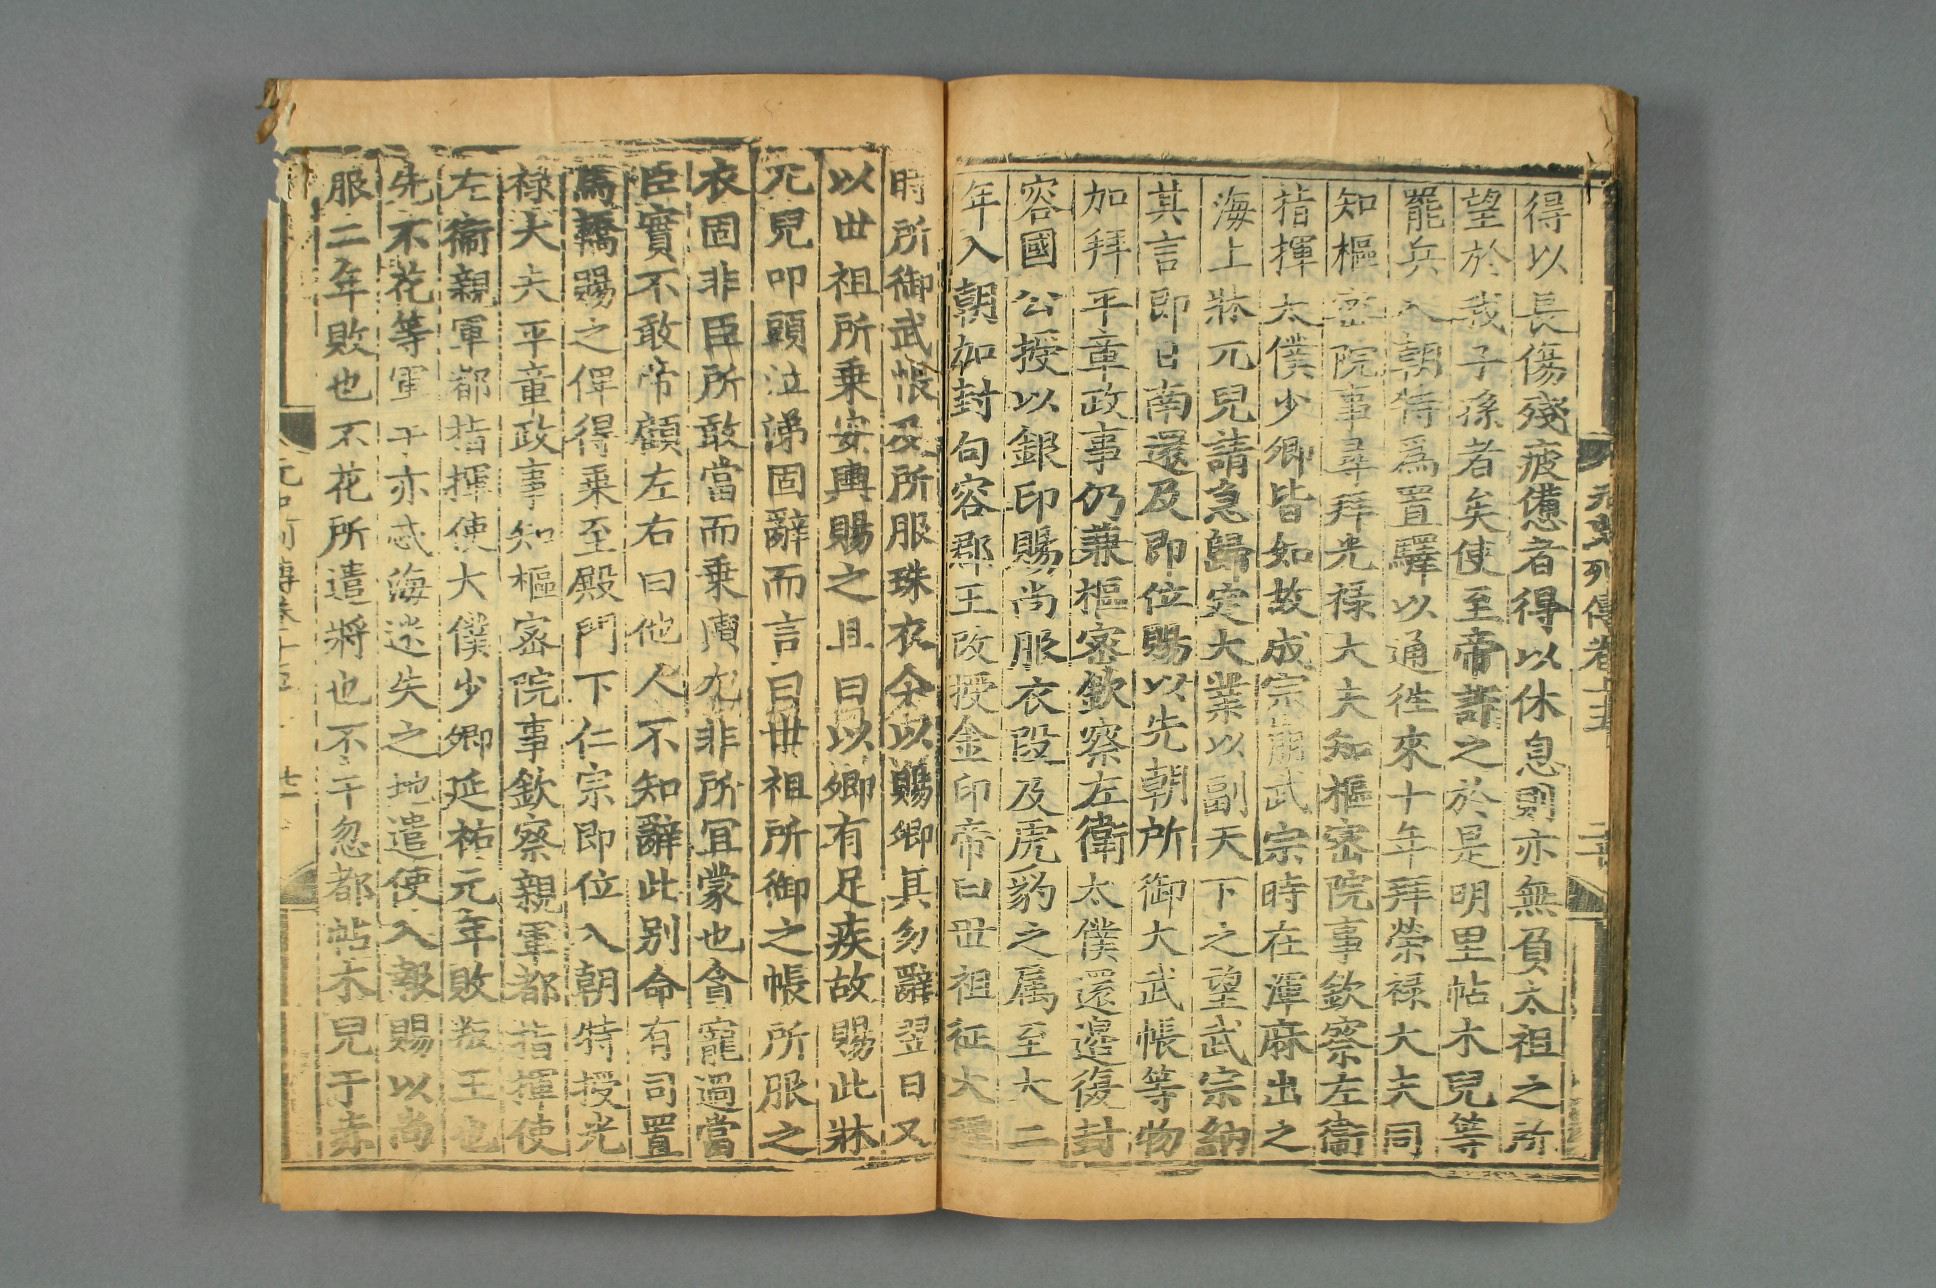 元史列傳卷十五
得以長傷殘疲憊者得以休息則亦無負太祖之所
望於我子孫者矣使至帝許之於是明里帖木兒等
罷兵入朝特爲置驛以通徃來十年拜榮祿大夫同
知樞密院事尋拜光祿大夫知樞密院事欽察左衞
指揮太僕少卿皆如故成宗崩武宗時在渾麻出之
海上牀兀兒請急歸定大業以副天下之望武宗納
其言即日南還及即位賜以先朝所御大武帳等物
加拜平章政事仍兼樞密欽察左衛太僕還邊復封
容國公授以銀印賜尚服衣段及虎豹之属至大二
年入朝加封句容郡王改授金印帝曰世祖征大理
時所御武帳及所服珠衣今以賜卿其勿辭翌日又
以世祖所乗安輿賜之且曰以卿有足疾故賜此牀
兀兒叩頭泣涕固辭而言曰世祖所御之帳所服之
衣固非臣所敢當而乗輿尤非所冝蒙也貪寵過當
臣實不敢帝顧左右曰他人不知辭此别命有司置
馬轎賜之俾得乗至殿門下仁宗即位入朝特授光
祿大夫平章政事知樞密院事欽察親軍都指揮使
左衞親軍都指揮使大僕少卿延祐元年敗叛王也
先不花等軍于亦忒海迷失之地遣使入報賜以尚
服二年敗也不花所遣將也不干忽都帖木兒于赤
元史列傳卷十五
廿一